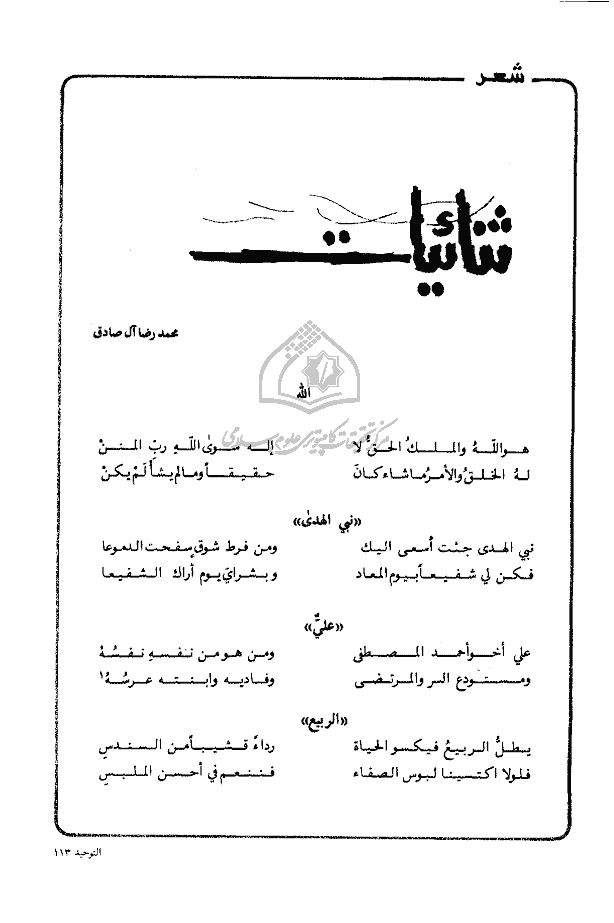 شعر
ثنائيات
محمد رضا آل صادق
الله
مركز تحقيقات كامپيوترى علوم اسلامى
هو اللّهُ والملكُ الحقُّ لا إله سوىٰ اللّهِ ربّ المننْ
لهُ الخلقُ والأمرُ ما شاء كانَ حقيقاً وما لم يشأ لَمْ يكنْ
«نبي الهدىٰ»
نبي الهدى جئت أسعى اليك ومن فرط شوقٍ سفحت الدموعا
فكن لي شفيعاً بيوم المعاد وبشرايَ يوم أراك الشفيعا
«عليٌّ»
علي أخو أحمد المصطفى ومن هو من نفسهِ نفسُهُ
ومستودع السر والمرتضى وفاديه وابنته عرسُهُ١
«الربيع»
يطلُّ الربيعُ فيكسو الحياة رداءً قشيباً من السندسِ
فلولا اكتسينا لبوس الصفاء فننعم في أحسن الملبسِ
التوحيد ١١٣